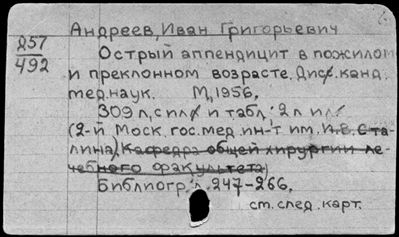 Андреев, Иван Григорьевич
257
492
Острый аппендицит в пожилом
и преклонном возрасте. Дис. канд.
мед. наук. М, 1956,
309 л, с ил и табл; 2 л ил
(2-й Моск. гос. мед. ин-т им. И. В. Ста-
лина). Кафедра общей хирургии ле-
чебного факультета)
Библиогр: л. 247-266.
ст. след. карт.